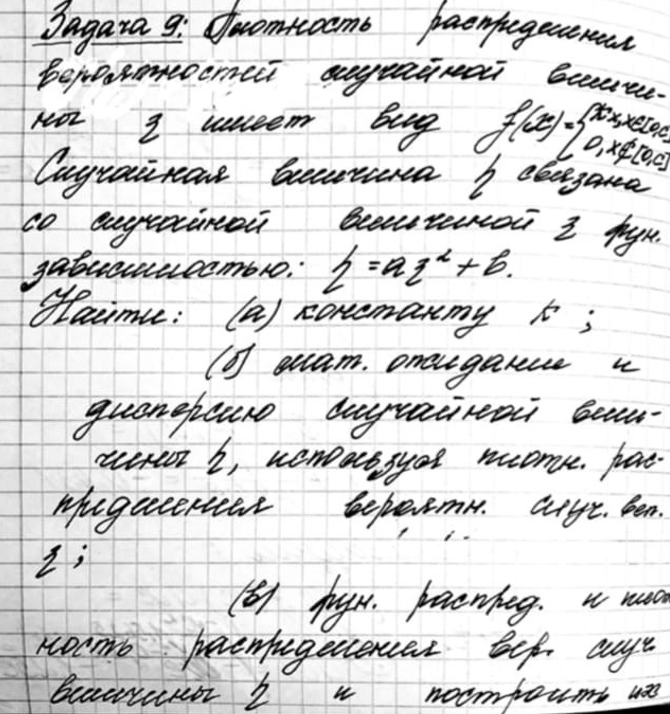 Задача 9: Плотность распределения
вероятностей случайной величи-
ны ξ имеет вид f(x)={kx, x∈[0,c]
0, x∉[0,c]
Случайная величина η связана
со случайной величиной ξ фун.
зависимостью: η = aξ² + b.
Найти: (а) константу k ;
(б) мат. ожидание и
дисперсию случайной вели-
чины η, используя плотн. рас-
пределения вероятн. случ. вел.
ξ ;
(в) фун. распред. и плот
ность распределения вер. случ.
величины η и построить их